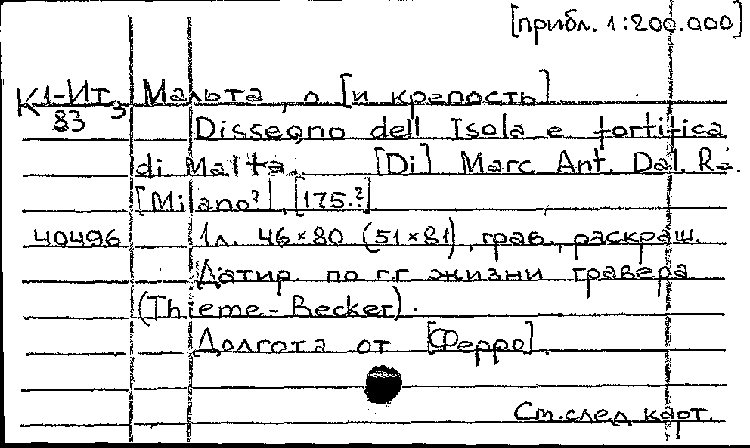 [прибл. 1:200.000]
К1-Ит 3 Мальта, о. [и крепость]
83
Dissegno dell Isola e fortifica
di Malta. [Di] Marc. Ant. Dal. Re.
[Milano?], [175.?]
40496 1л. 46×80 (51×81), грав., раскраш.
Датир. по гг. жизни гравера
(Thieme-Becker).
Долгота от [Ферро].
См. след. карт.